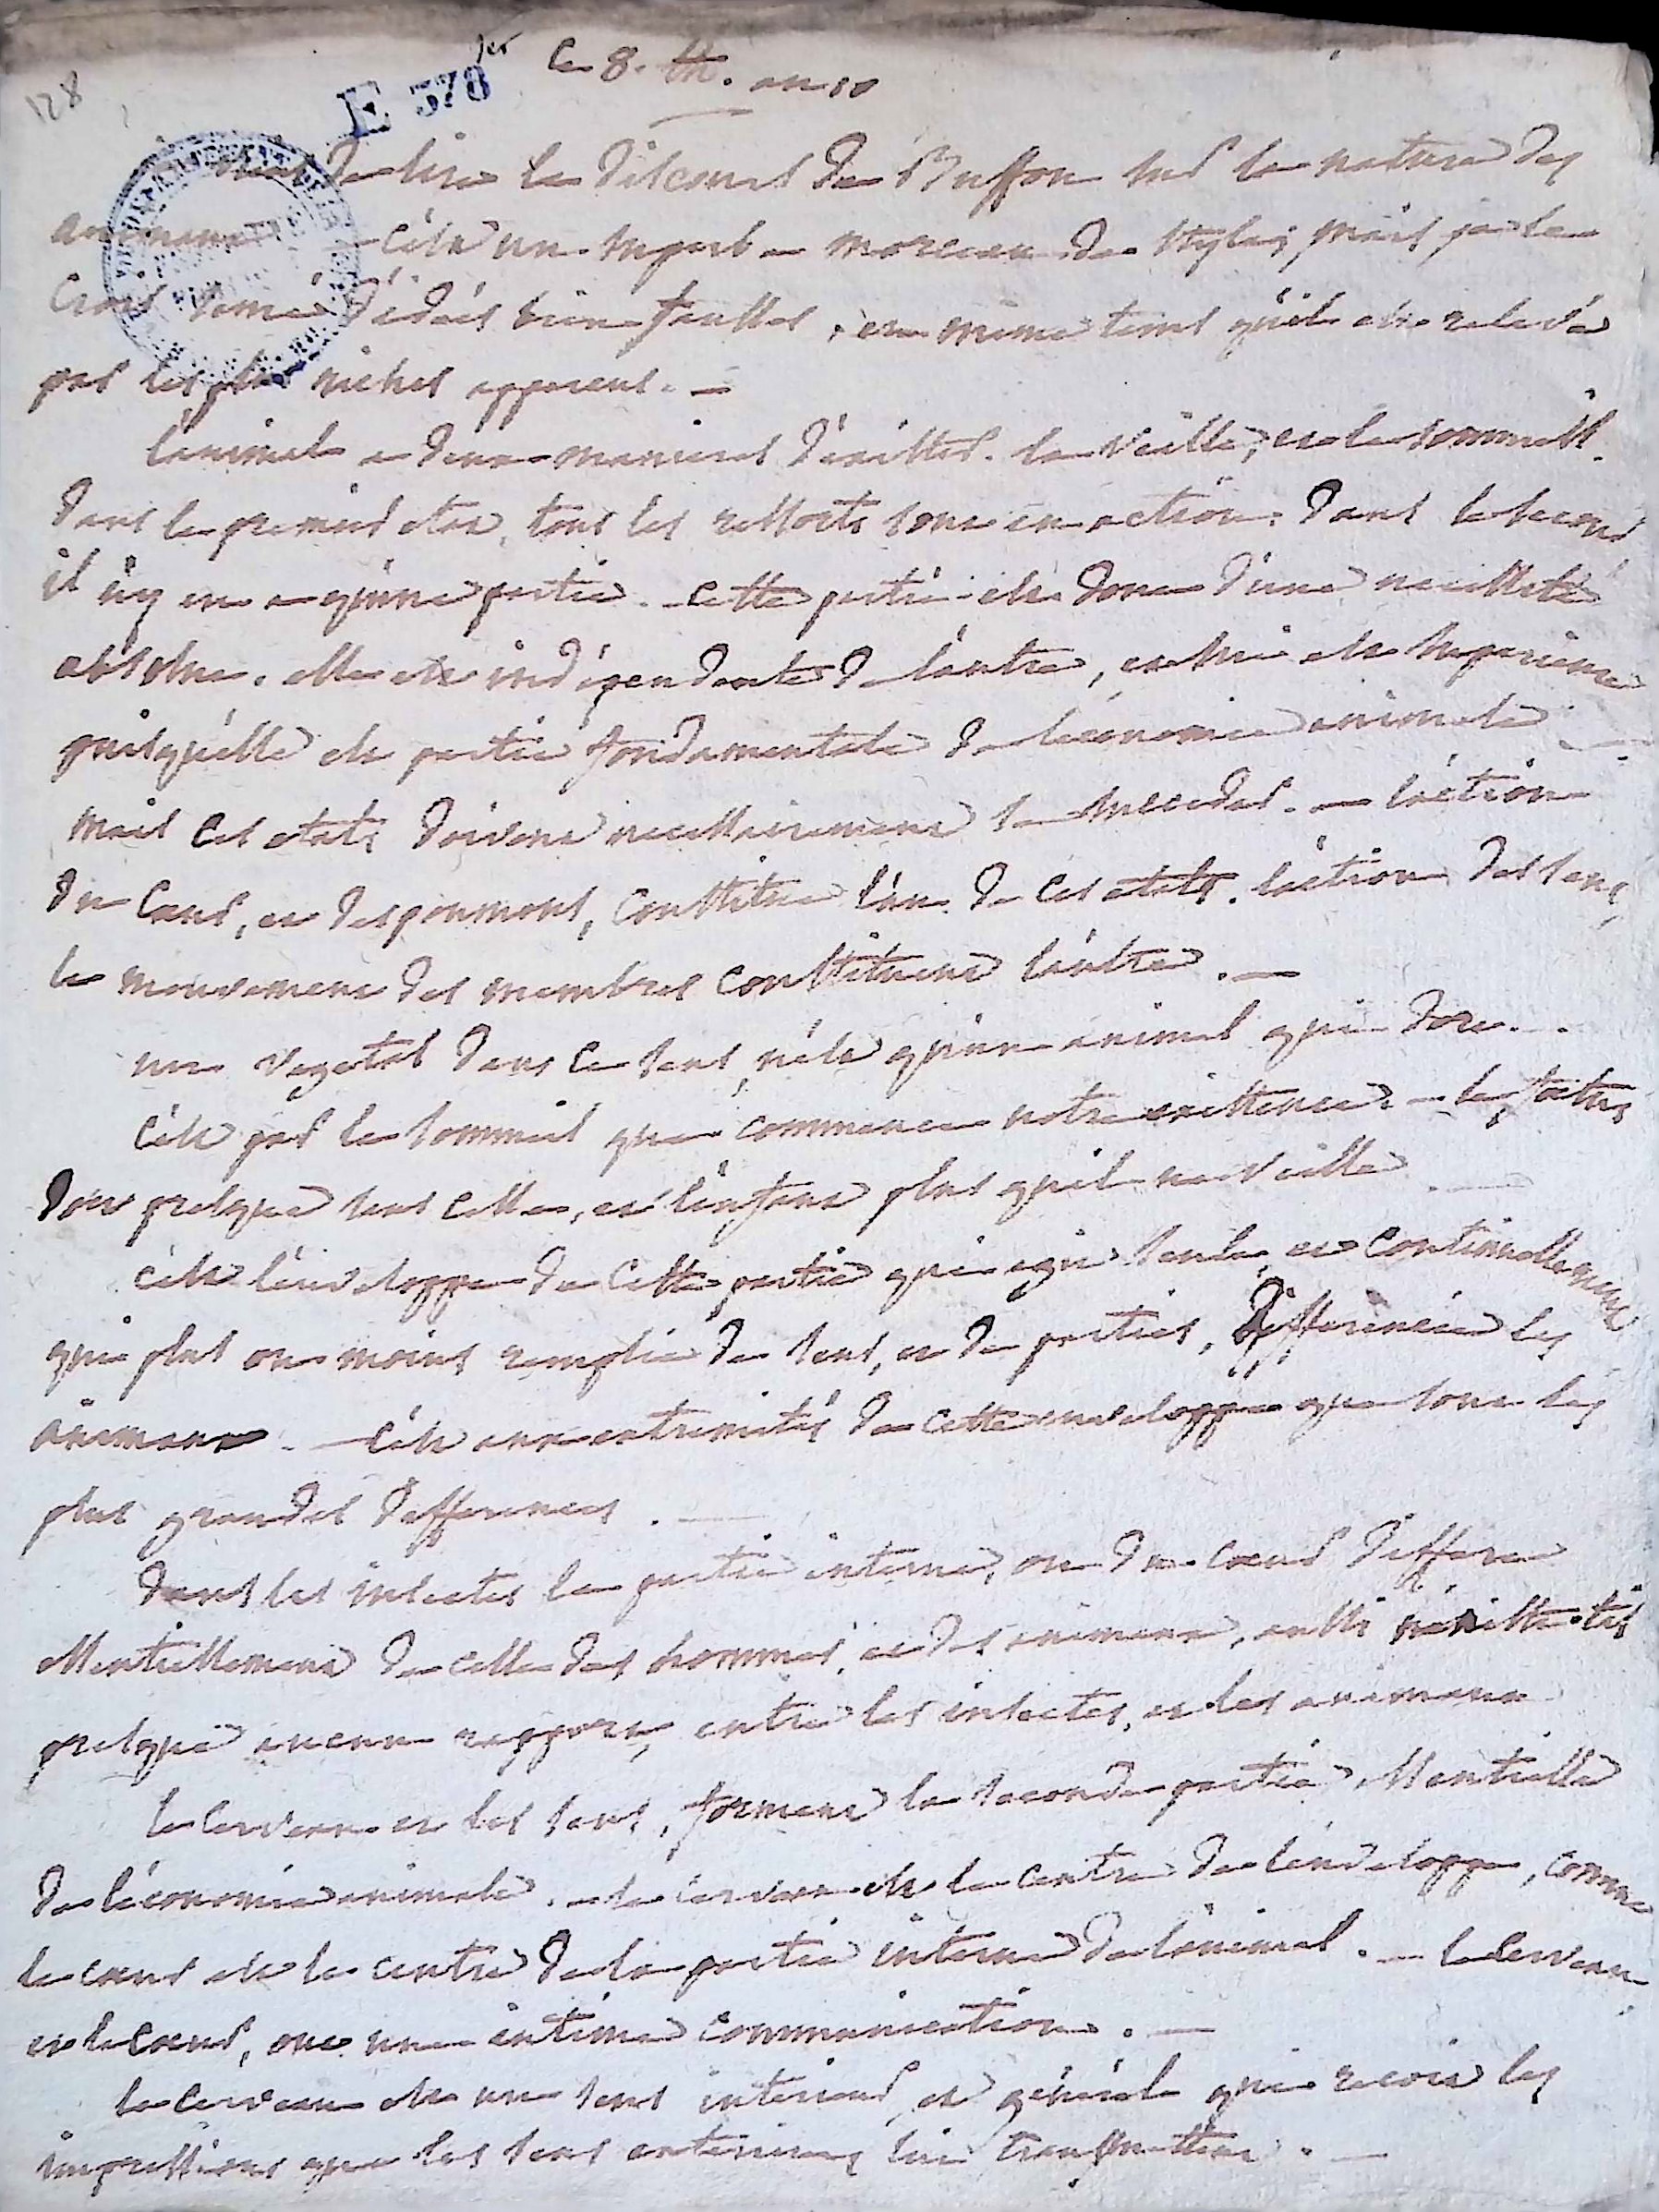 128
E 378
ter
Ce 8. th. an 10
viens de lire le discours de Buffon sur la nature des
animaux. — c'est un superbe morceau de style; mais je le
crois semé d'idées bien fausses, en même tems qu'il est relevé
par les plus riches apperçus. —
l'animal a deux manieres d'exister. la veille, et le sommeil.
dans le premier etat, tous les ressorts sont en action. dans le second
il n'y en a qu'une partie. cette partie est donc d'une necessité
absolue. elle est indépendante de l'autre, et lui est superieure
puisqu'elle est partie fondamentale de l'économie animale
mais ces etats doivent necessairement se succeder. — l'action
du cœur, et des poumons, constitue l'un de ces etats. l'action des sens,
le mouvement des membres constituent l'autre. —
un vegetal dans ce sens, n'est qu'un animal qui dort.
c'est par le sommeil que commence notre existence. — le fœtus
dort presque sans cesse, et l'enfant plus qu'il ne veille
c'est l'enveloppe de cette partie qui agit seule, et continuellement
qui plus ou moins remplie de sens, et de parties, differencie les
animaux. — c'est aux extremités de cette enveloppe que sont les
plus grandes differences. —
dans les insectes la partie interne, ou du cœur differe
essentiellement de celle des hommes, et des animaux, aussi n'existe-t-il
presque aucun rapport, entre les insectes, et les animaux
le cerveau et les sens, forment la seconde partie essentielle
de l'économie animale. — le cerveau est le centre de l'enveloppe, comme
le cœur est le centre de la partie interne de l'animal. — le cerveau
et le cœur, ont une intime communication. —
le cerveau est un sens interieur, et général qui recoit les
impressions que les sens exterieurs lui transmettent. —